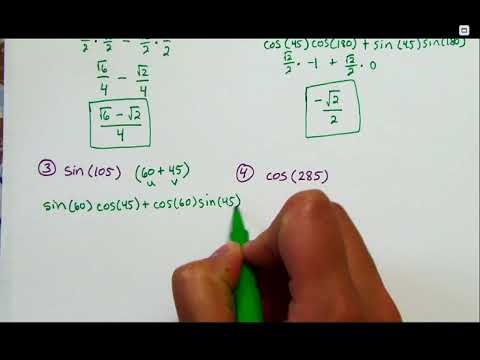 2 · 2 - 2 · 2
√6/4 - √2/4
√6 - √2/4
cos(45)cos(180) + sin(45)sin(180)
√2/2 · -1 + √2/2 · 0
-√2/2
③ sin(105) (60 + 45)
u v
sin(60)cos(45) + cos(60)sin(45)
④ cos(285)